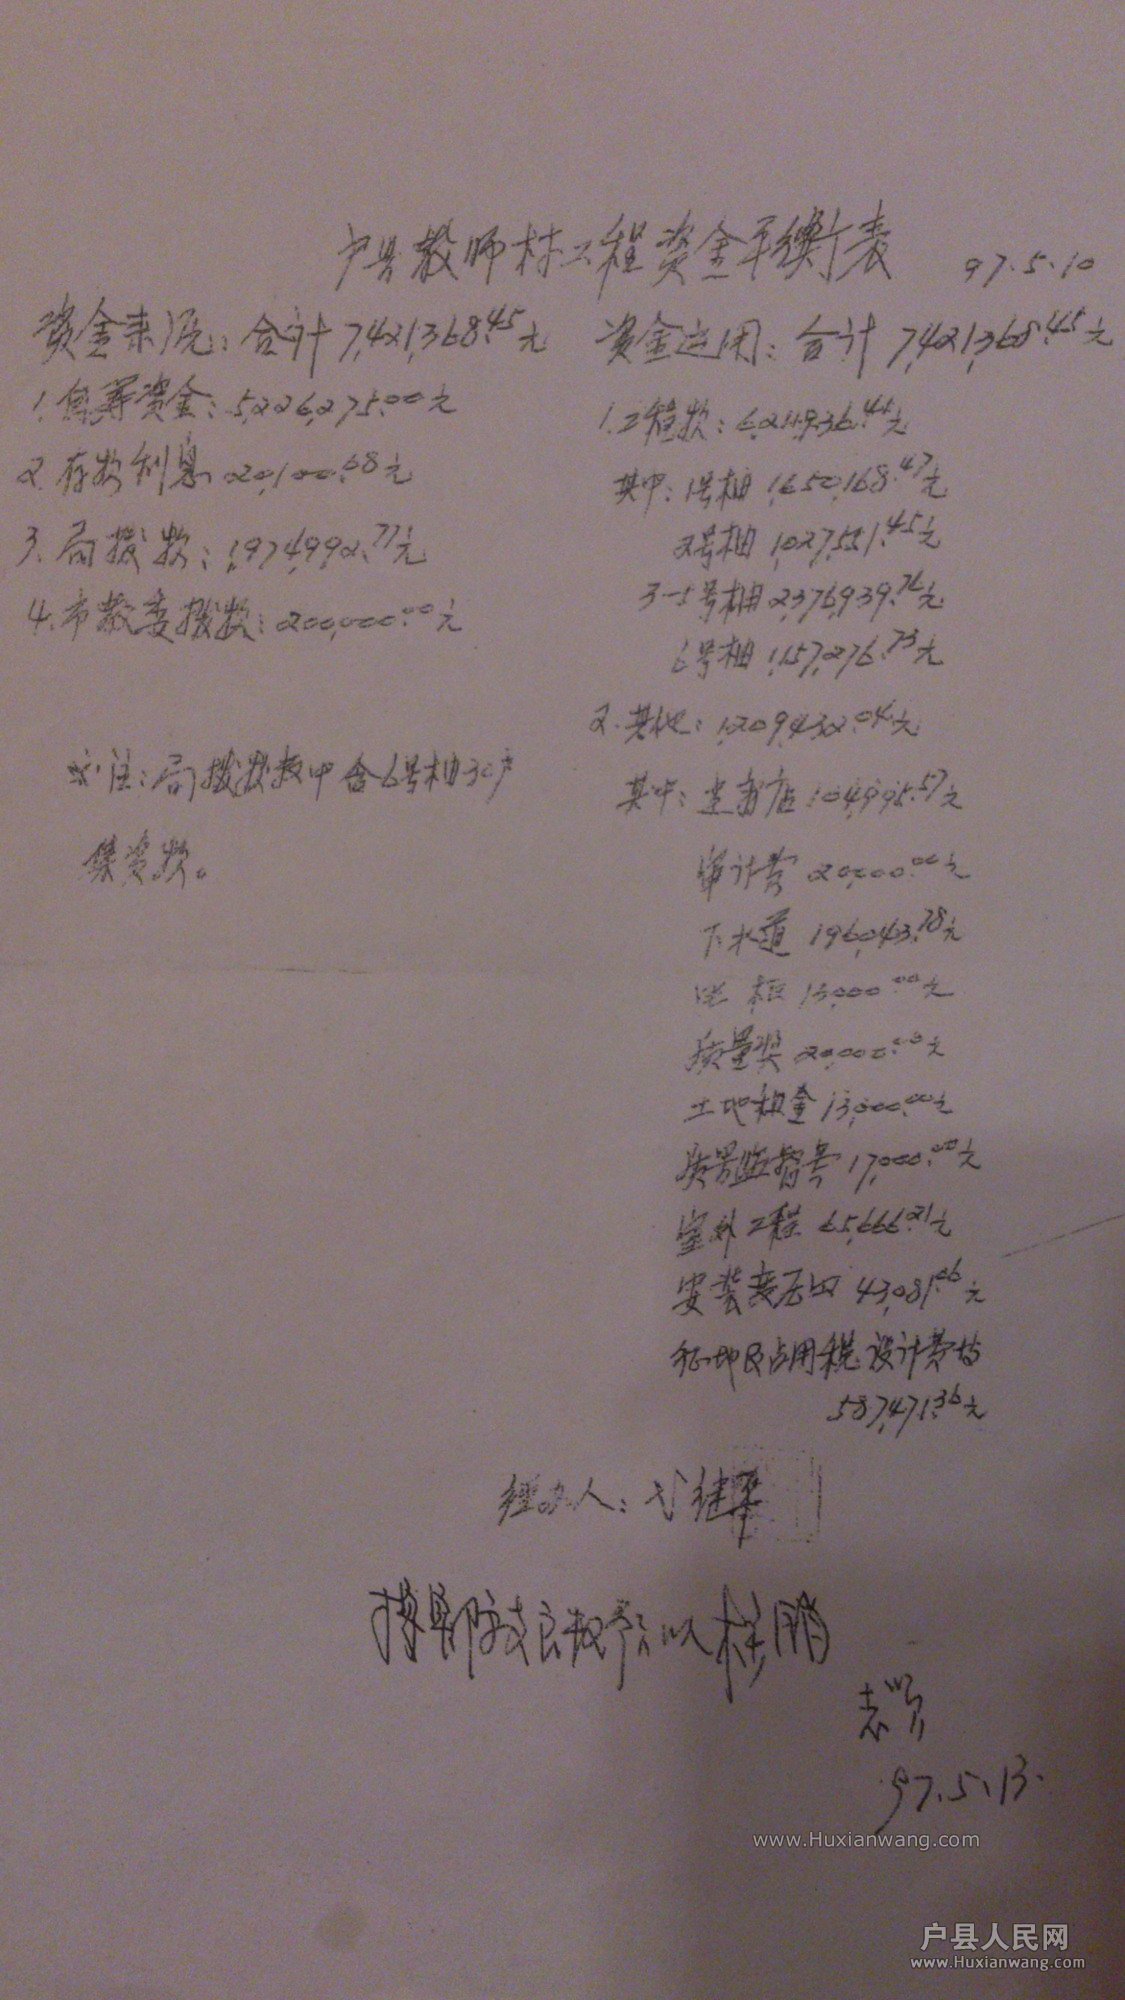 户县教师村工程资金平衡表 97.5.10
资金来源：合计7,421,368.45元
1.自筹资金：5,226,275.00元
2.存款利息 20,100.68元
3.局拨款：1,974,992.77元
4.市教委拨款：200,000.00元
注：局拨款中含6号楼30户
集资款。
资金运用：合计7,421,368.45元
1.工程款：6,211,936.41元
其中：1号楼 1,650,168.47元
2号楼 1,027,551.45元
3-5号楼 2,376,939.76元
6号楼 1,157,276.73元
2.其他：1,209,432.04元
其中： 104,995.57元
审计费 20,000.00元
下水道 196,043.78元
13,000.00元
质量奖 20,000.00元
土地租金 13,000.00元
质量监督费 17,000.00元
室外工程 65,666.21元
安装变压 43,081.06元
征地及占用税设计费等
587,471.36元
经办人：继
97.5.13.
www.Huxianwang.com
户县人民网
www.Huxianwang.com